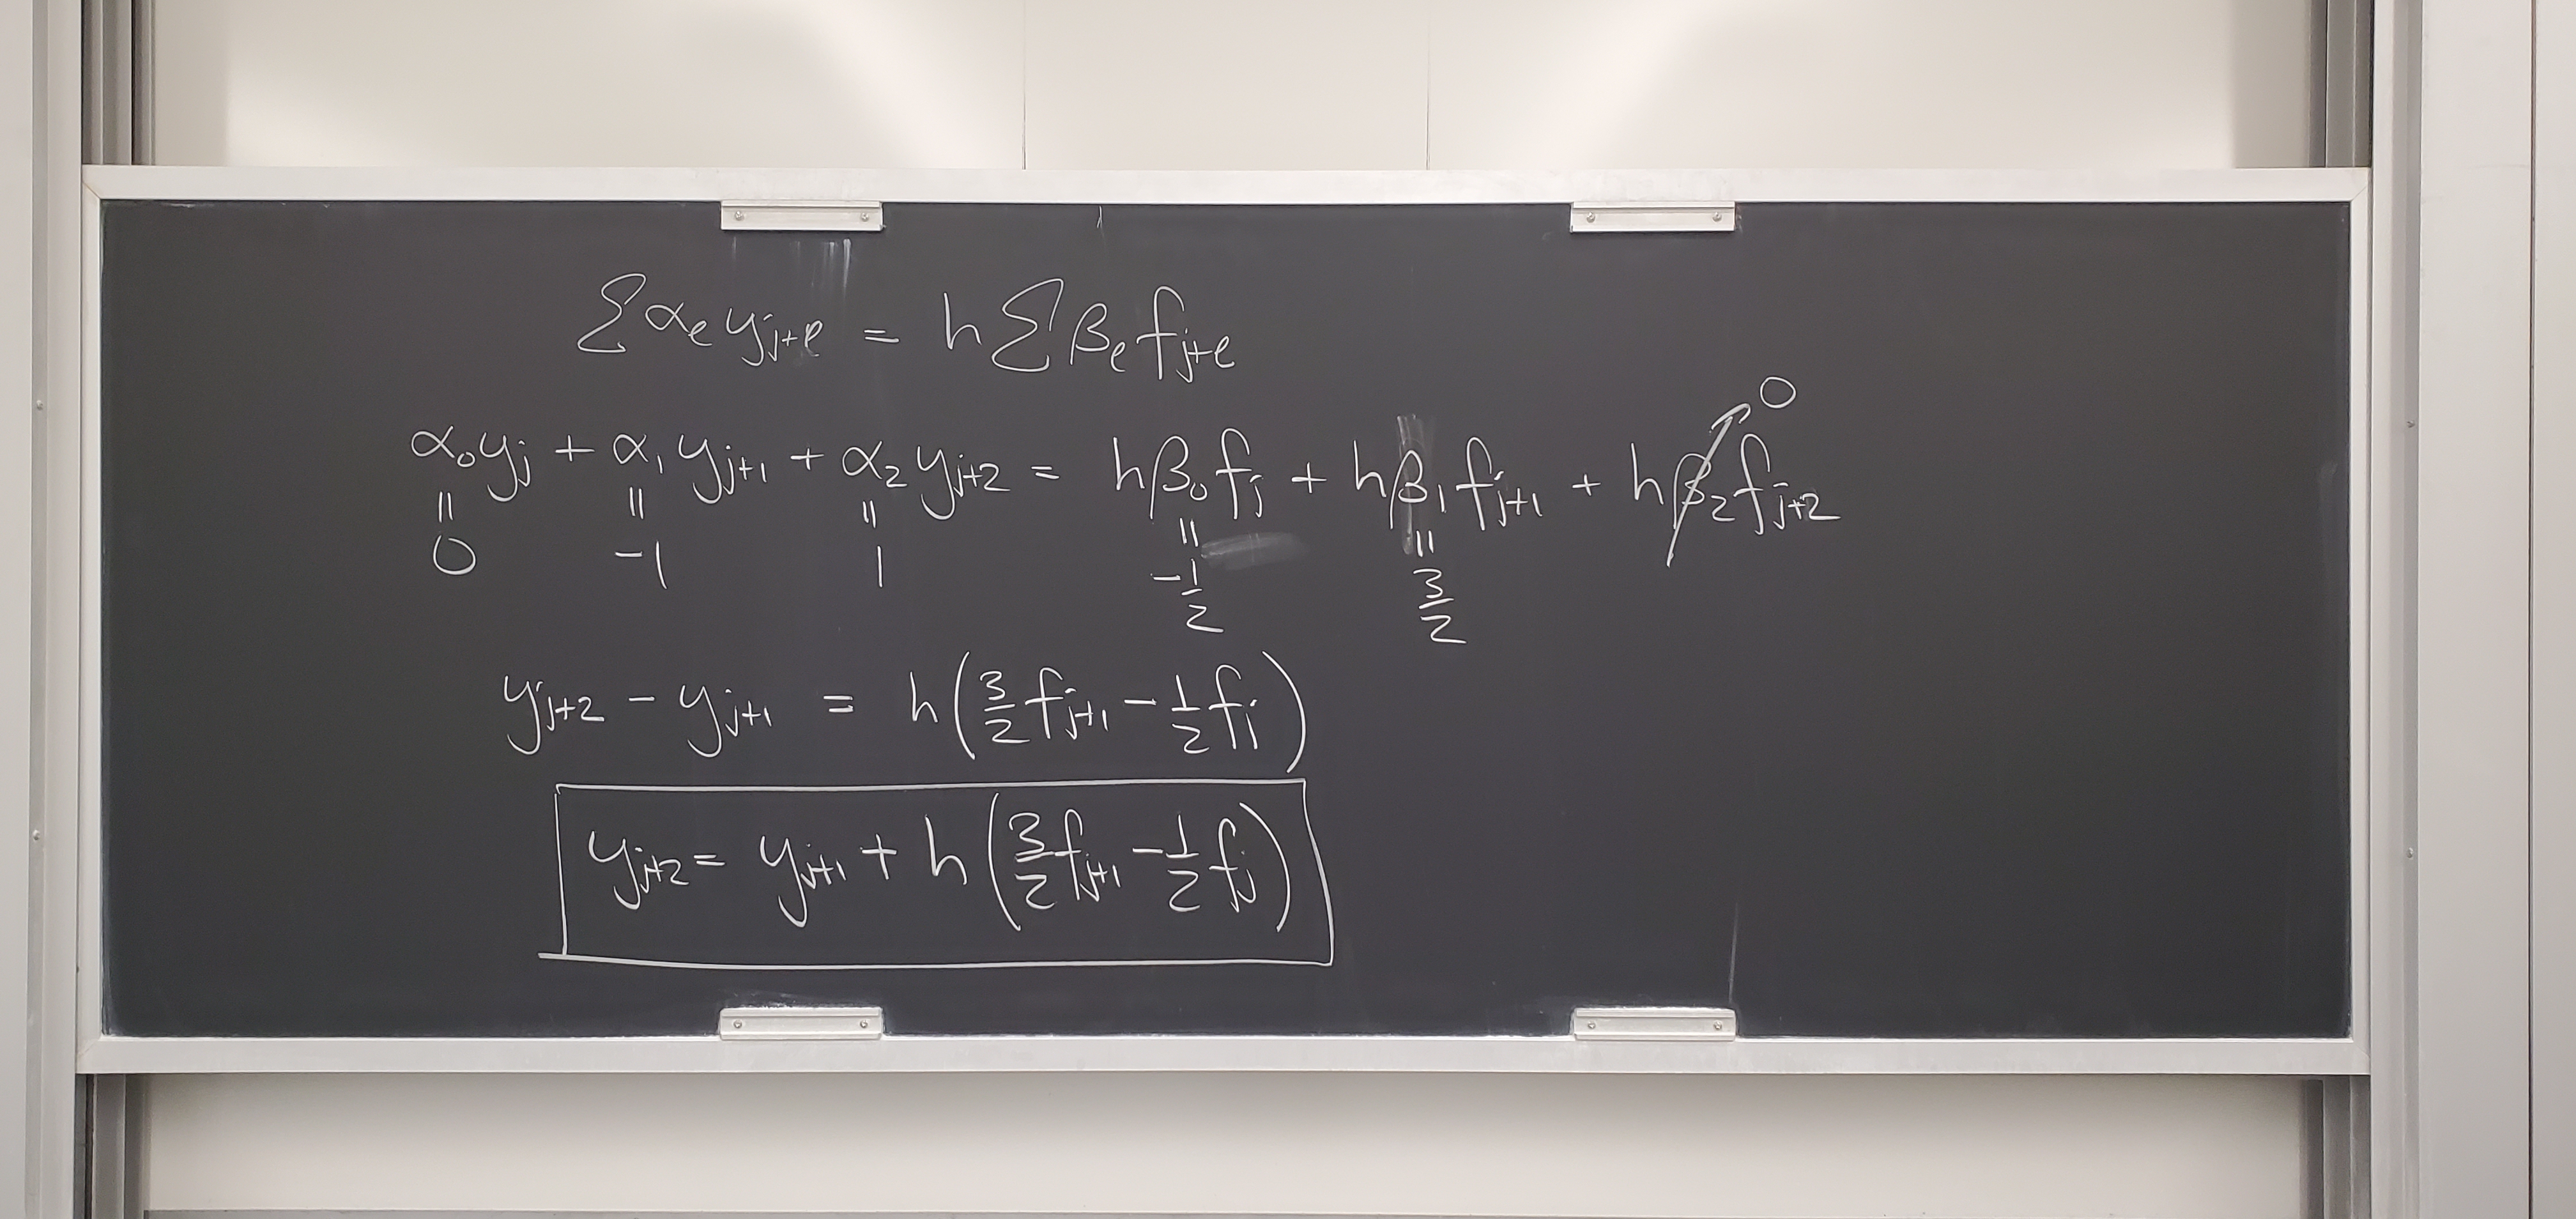 ∑ αₗ yⱼ₊ₗ = h ∑ βₗ fⱼ₊ₗ
α₀yⱼ + α₁yⱼ₊₁ + α₂yⱼ₊₂ = hβ₀fⱼ + hβ₁fⱼ₊₁ + hβ₂fⱼ₊₂ → 0
|| || || || ||
0 -1 1 -1/2 3/2
yⱼ₊₂ - yⱼ₊₁ = h(3/2 fⱼ₊₁ - 1/2 fⱼ)
yⱼ₊₂ = yⱼ₊₁ + h(3/2 fⱼ₊₁ - 1/2 fⱼ)